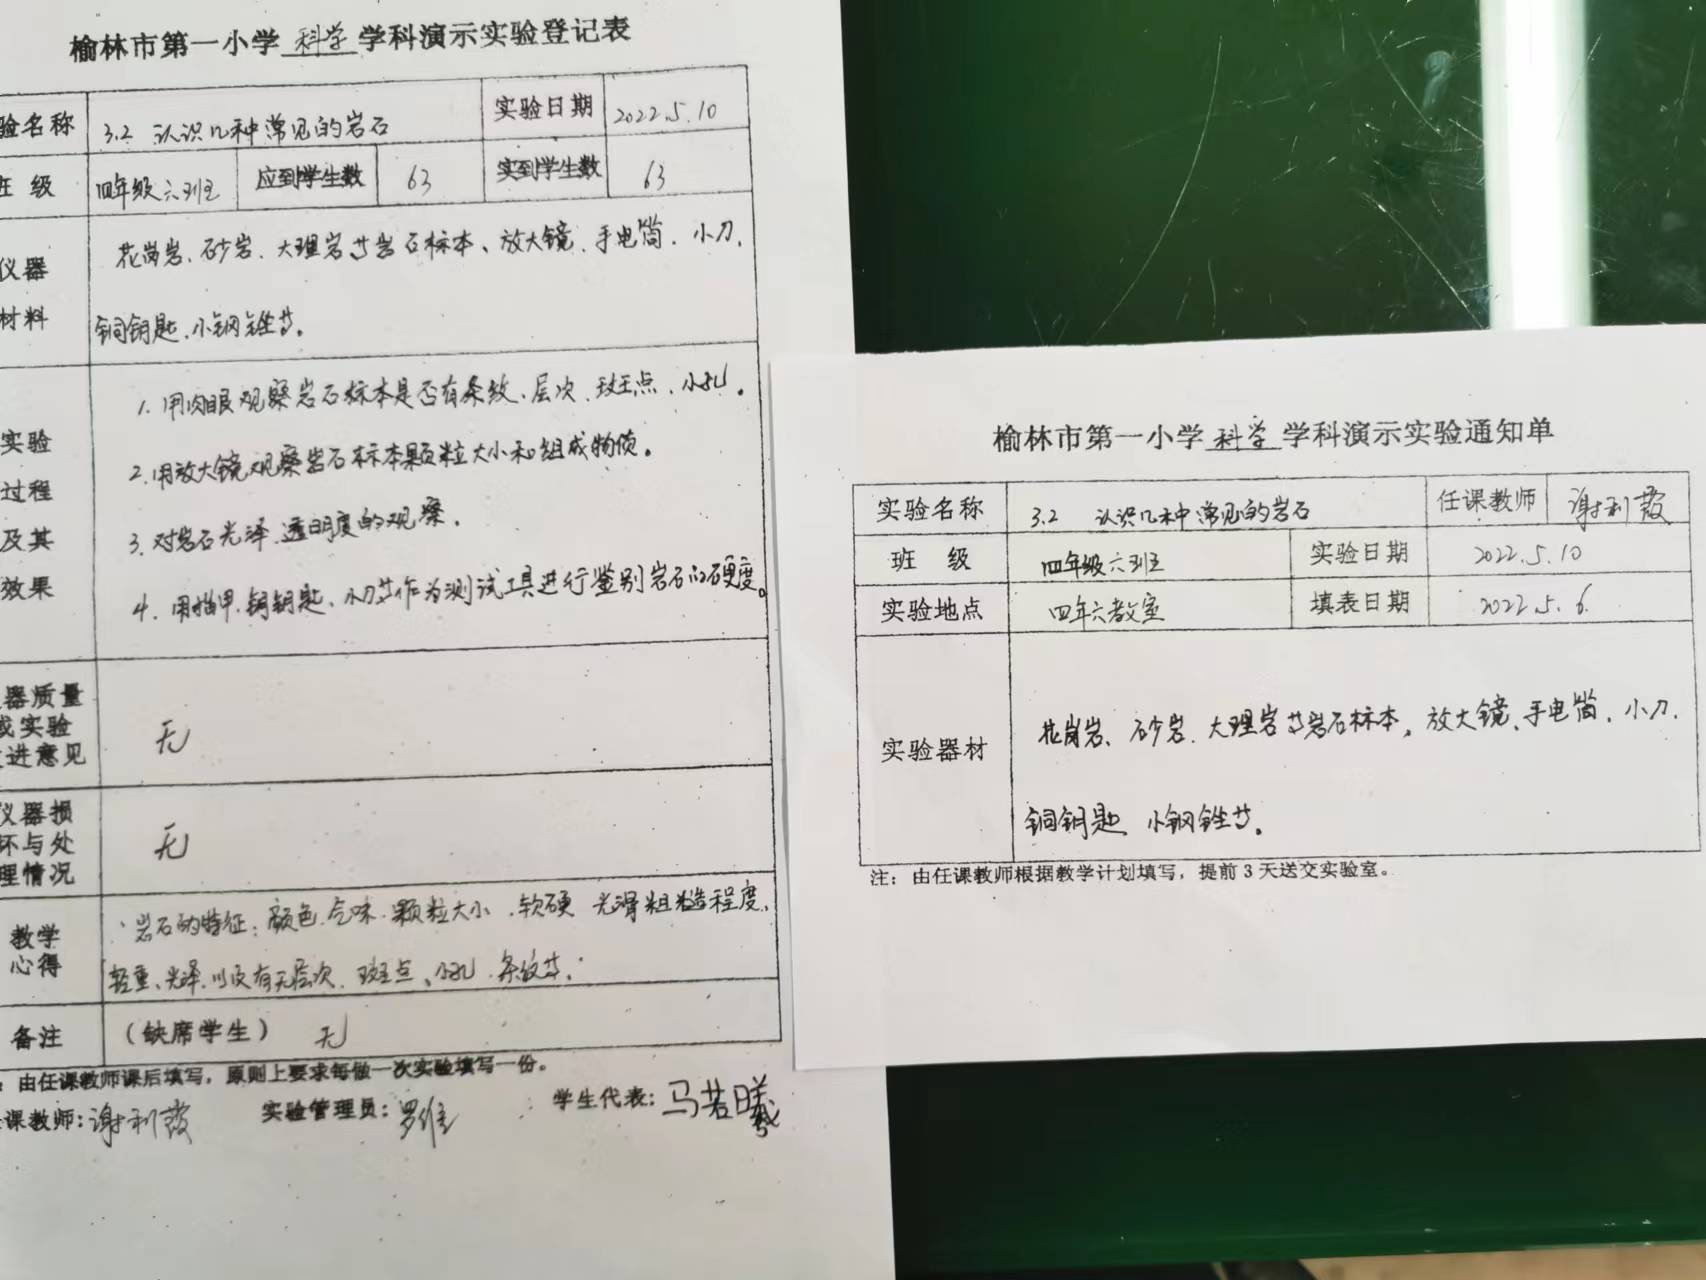 榆林市第一小学 科学 学科演示实验登记表
验名称 3.2 认识几种常见的岩石 实验日期 2022.5.10
班 级 四年级六班 应到学生数 63 实到学生数 63
仪器
材料
花岗岩、砂岩、大理岩等岩石标本、放大镜、手电筒、小刀、
铜钥匙、小钢锉等。
实验
过程
及其
效果
1. 用肉眼观察岩石标本是否有条纹、层次、斑点、小孔。
2. 用放大镜观察岩石标本颗粒大小和组成物质。
3. 对岩石光泽、透明度的观察。
4. 用指甲、铜钥匙、小刀等作为测试工具进行鉴别岩石的硬度。
器质量
或实验
进意见
无
仪器损
坏与处
理情况
无
教学
心得
岩石的特征:颜色、气味、颗粒大小、软硬、光滑粗糙程度、
轻重、光泽、以及有无层次、斑点、小孔、条纹等。
备注 (缺席学生) 无
:由任课教师课后填写,原则上要求每做一次实验填写一份。
课教师:谢利霞 实验管理员:罗维 学生代表:马若曦
榆林市第一小学 科学 学科演示实验通知单
实验名称 3.2 认识几种常见的岩石 任课教师 谢利霞
班 级 四年级六班 实验日期 2022.5.10
实验地点 四年六教室 填表日期 2022.5.6.
实验器材
花岗岩、砂岩、大理岩等岩石标本、放大镜、手电筒、小刀、
铜钥匙 小钢锉等。
注:由任课教师根据教学计划填写,提前3天送交实验室。